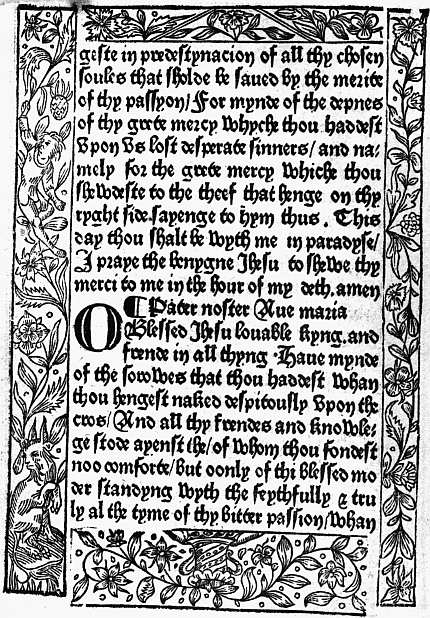 geste in predestynacion of all thy chosen
soules that sholde be saued by the merite
of thy passyon/ For mynde of the depnes
of thy grete mercy whyche thou haddest
vpon vs lost desperate sinners/ and na-
mely for the grete mercy whiche thou
shewdeste to the theef that henge on thy
ryght side.sayenge to hym thus. This
day thou shalt be wyth me in paradyse/
I praye the benygne Ihesu to shewe thy
merci to me in the hour of my deth. amen
¶ Pater noster Aue maria
O Blessed Ihesu louable kyng.and
frende in all thyng .Haue mynde
of the sorowes that thou haddest whan
thou hengest naked despitously vpon the
cros/ And all thy frendes and knowle-
ge stode ayenst the/ of whom thou fondest
noo comforte/ but oonly of thi blessed mo
der standyng wyth the feythfully & tru
ly al the tyme of thy bitter passion/ whan